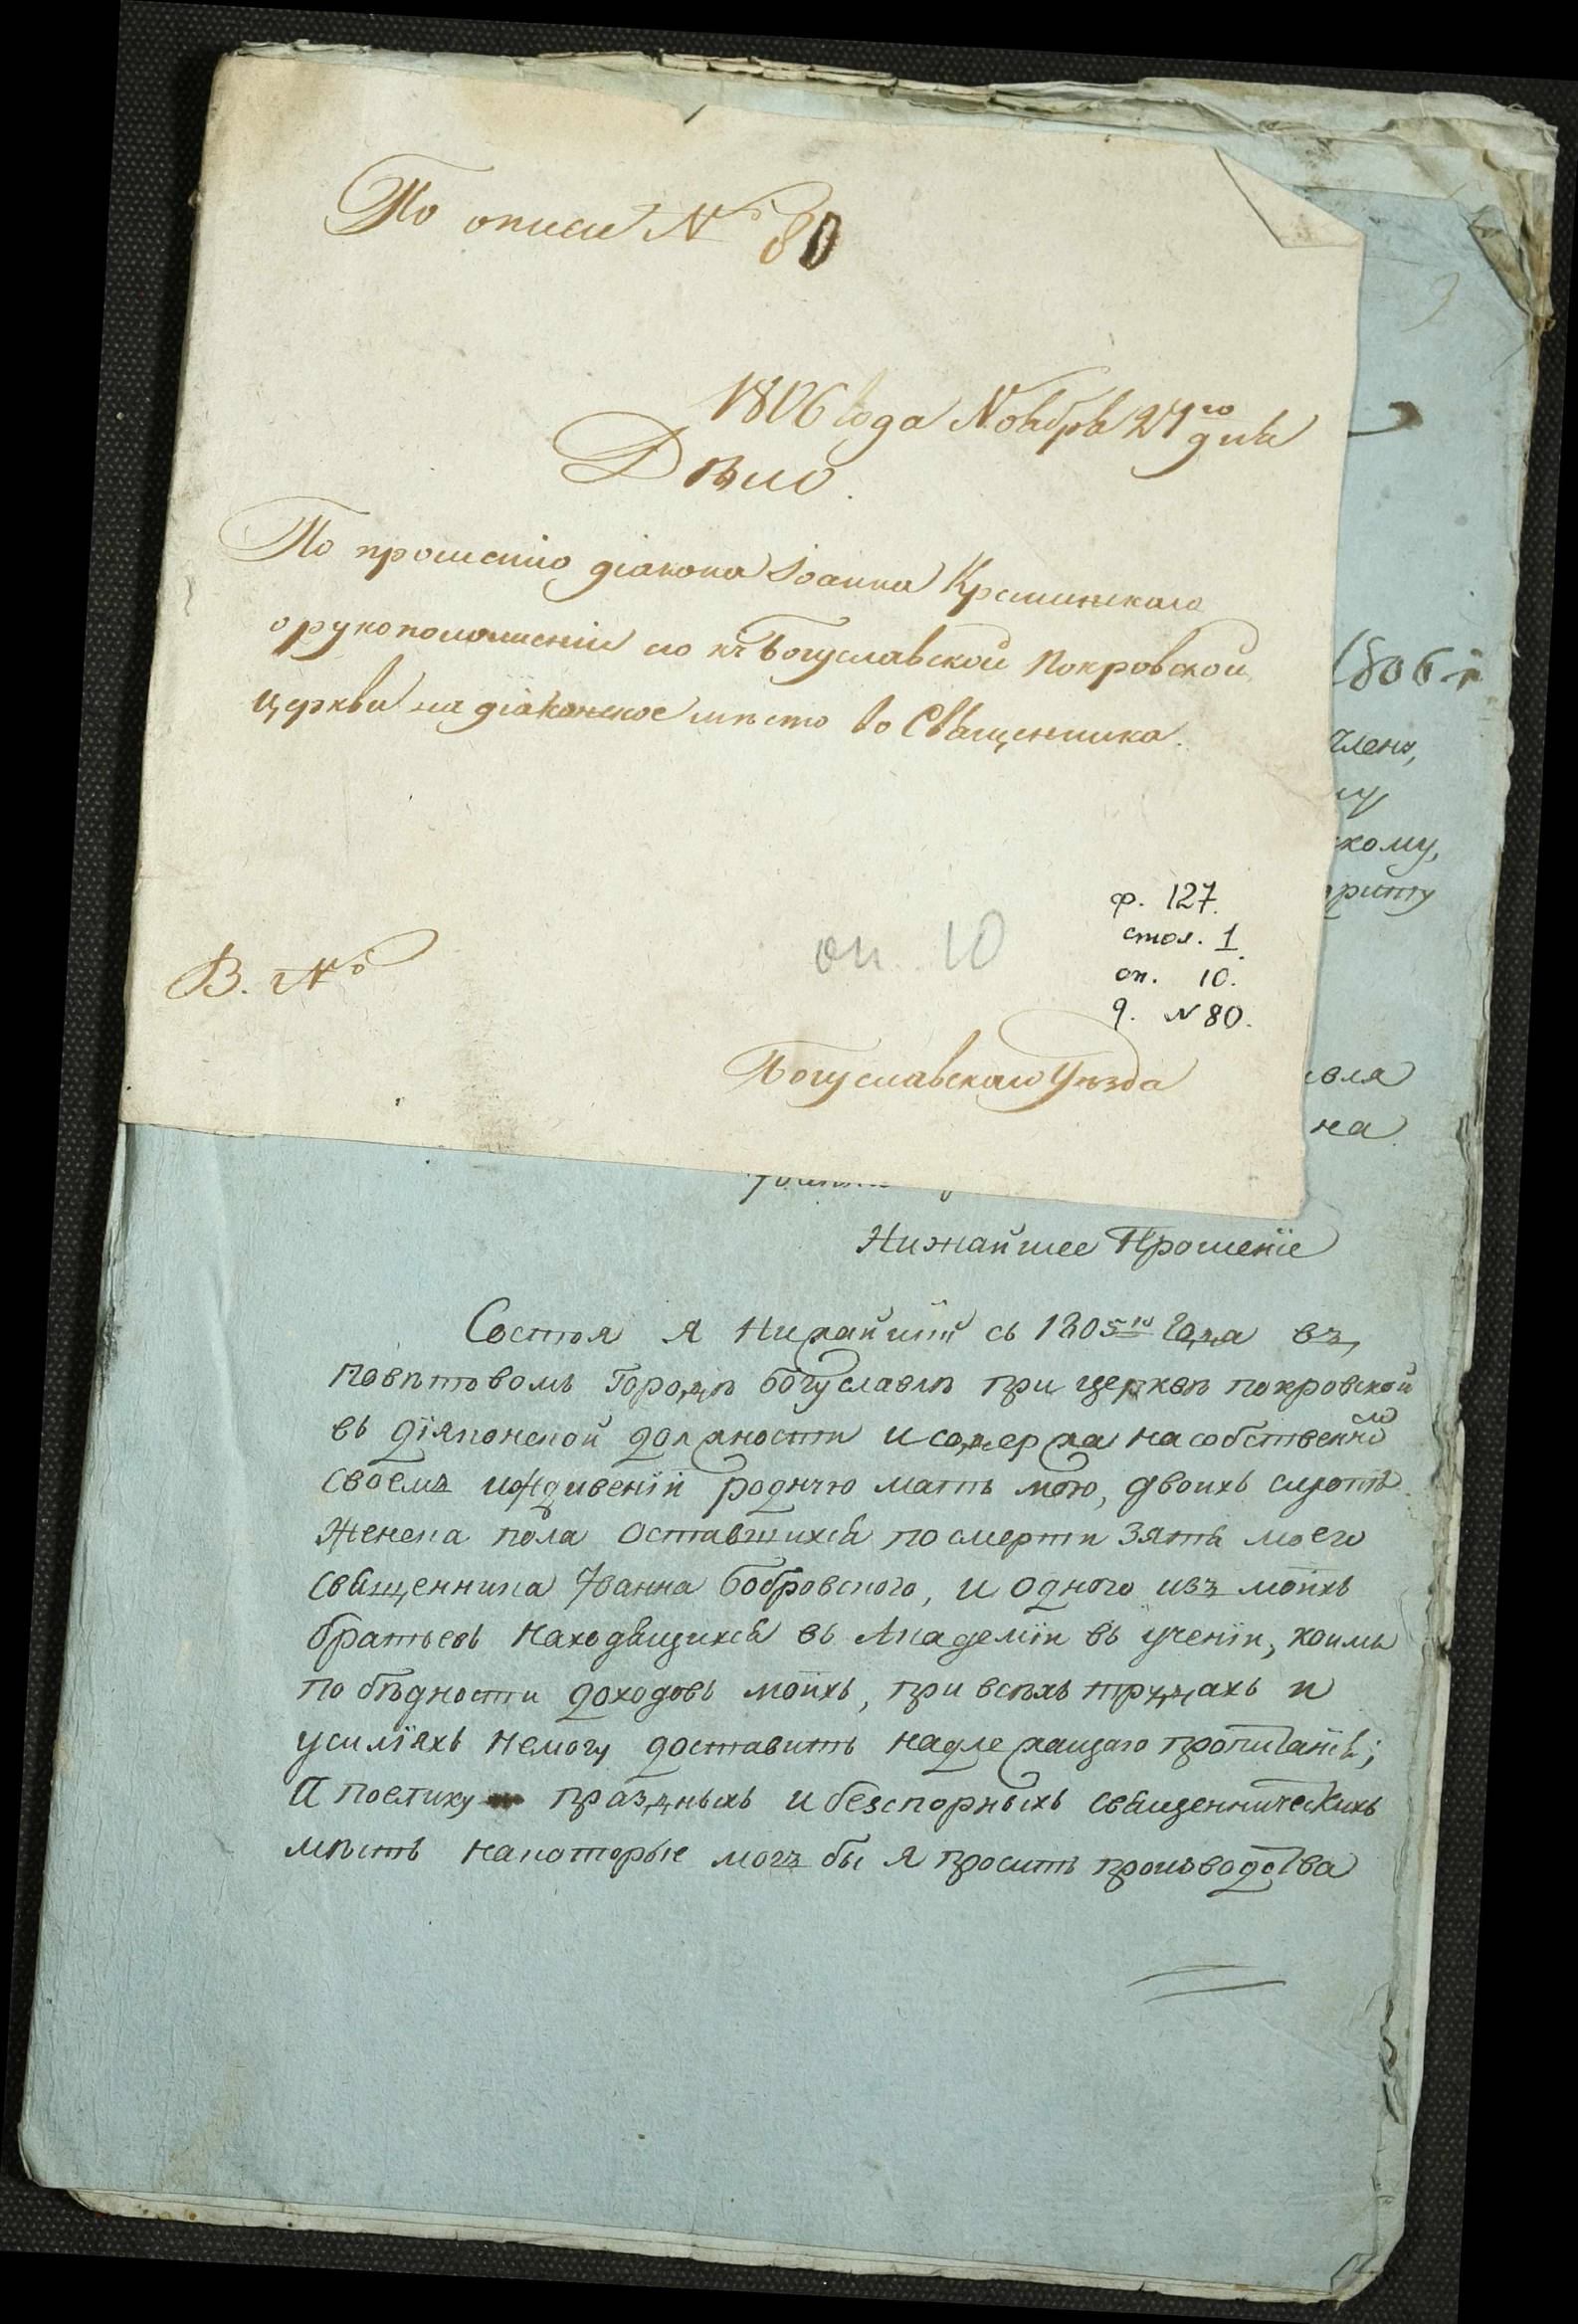 По описи № 80
1806 года Ноября 27го дня
Дѣло.
По прошенію діакона Іоанна Креминскаго
о рукоположеніи его къ Богуславской Покровской
церкви на діаконское мѣсто во Священника.
ф. 127.
стол. 1.
оп. 10
оп. 10.
В. №
д. № 80.
Богуславскаго Уѣзда
1806-г
члену,
му
скому,
вля
на
Нижайшее Прошеніе
Состоя я Нижайшій съ 1805го Года въ
повѣтовомъ Городѣ богуславлѣ при церквѣ покровской
въ діяконской должности и содержа на собственно
своемъ иждивеніи родную мать мою, двоихъ сиротъ
женска пола оставшихся по смерти зятя моего
священника Іоанна бобровского, и одного изъ моихъ
братьевъ находящихся въ Академіи въ ученіи, коимъ
по бѣдности доходовъ моихъ, при всѣхъ трудахъ и
усиліяхъ немогу доставить надлежащаго пропитанія;
А поелику праздныхъ и безспорныхъ священническихъ
мѣстъ накоторые могъ бы я просить производства